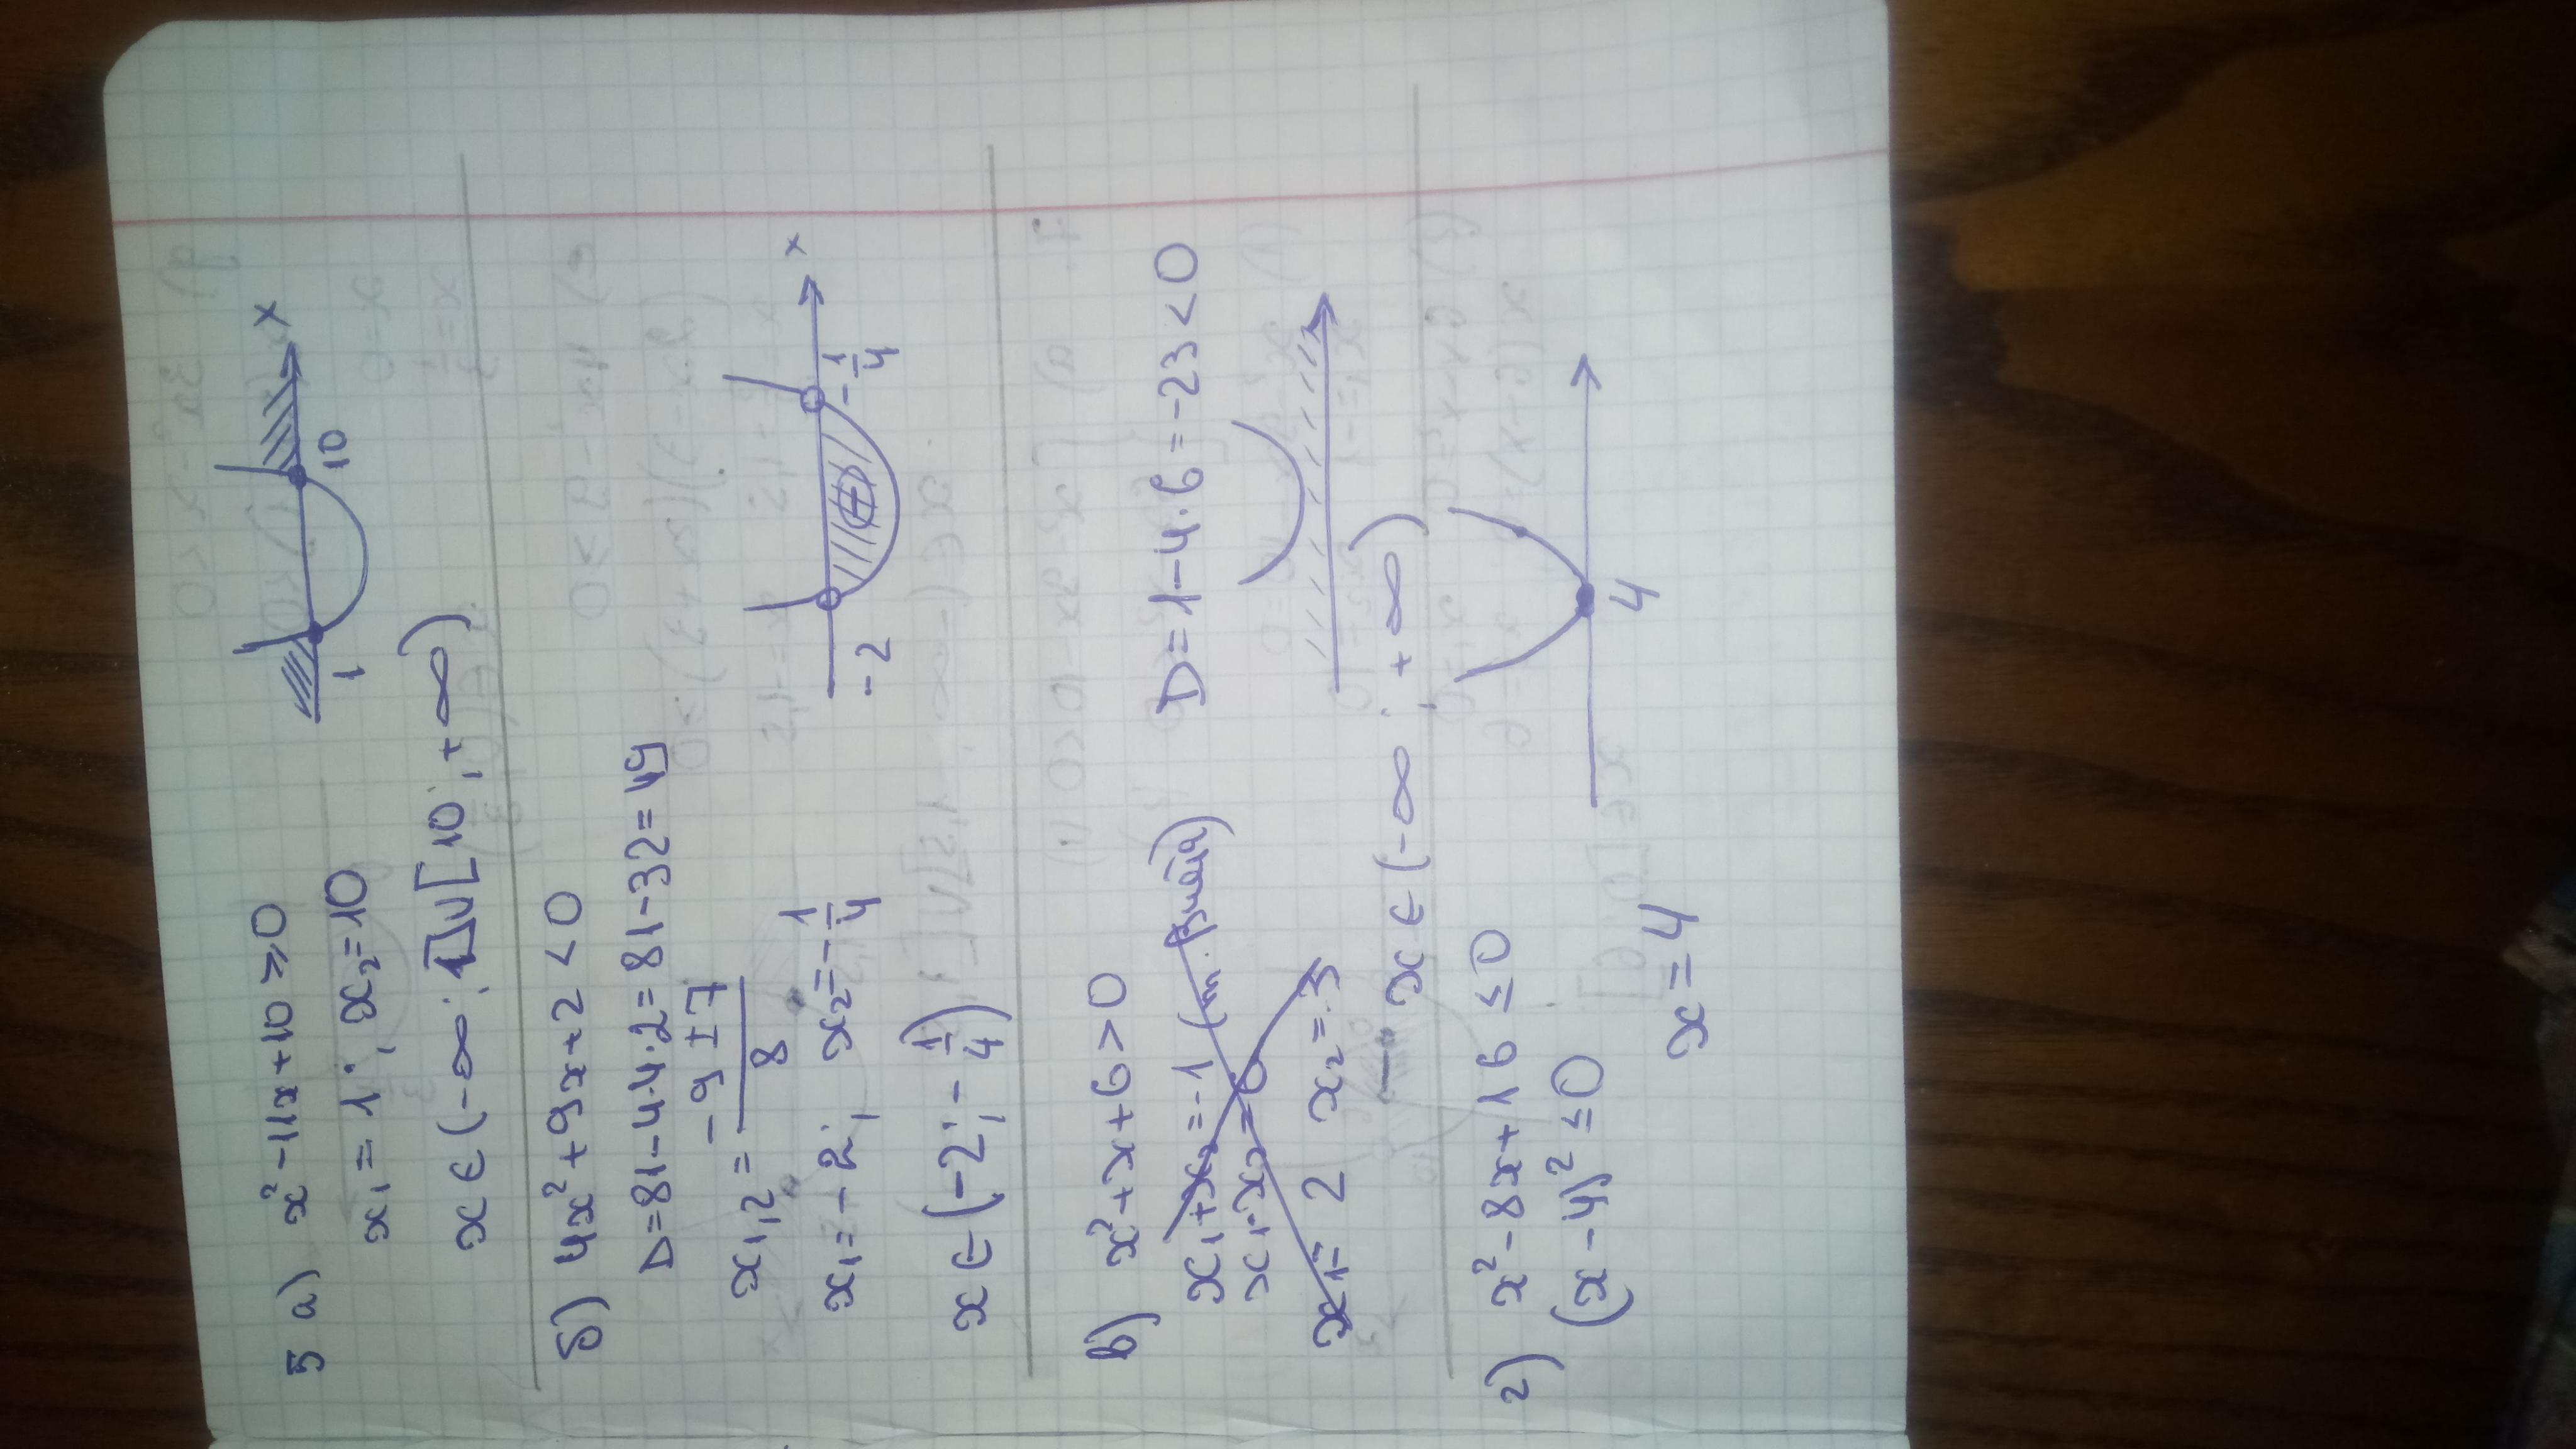 5 а) x² - 11x + 10 ≥ 0
x₁ = 1; x₂ = 10
1 10 x
x ∈ (-∞; 1] ∪ [10; +∞)
б) 4x² + 9x + 2 < 0
D = 81 - 4·4·2 = 81 - 32 = 49
x₁,₂ = (-9 ± 7)/8
x₁ = -2; x₂ = -1/4
-2 -1/4 x
x ∈ (-2; -1/4)
в) x² + x + 6 > 0
x₁ + x₂ = -1 (т. Виета)
D = 1 - 4·6 = -23 < 0
x₁·x₂ = 6
x₁ = 2 x₂ = -3
x ∈ (-∞; +∞)
г) x² - 8x + 16 ≤ 0
(x - 4)² ≤ 0
4
x = 4